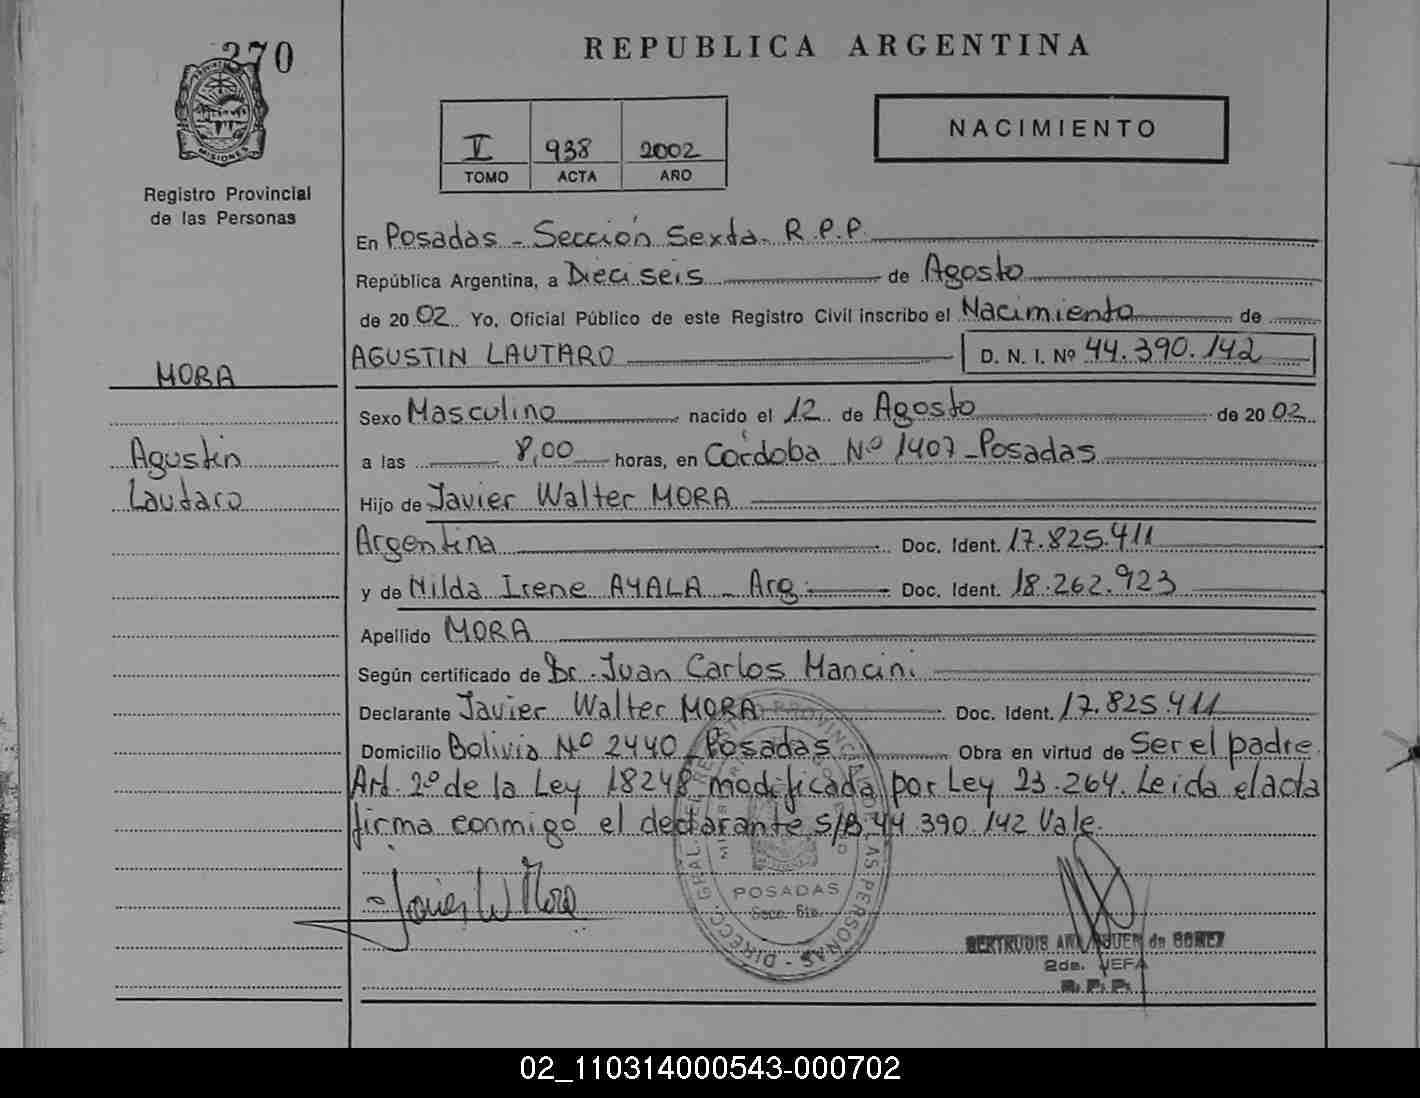 370
REPUBLICA ARGENTINA
PROVINCIA
MISIONES
Registro Provincial
de las Personas
V 938 2002
TOMO ACTA AÑO
NACIMIENTO
En Posadas - Sección Sexta. R.P.P.
República Argentina, a Dieciseis de Agosto
de 2002. Yo, Oficial Público de este Registro Civil inscribo el Nacimiento de
AGUSTIN LAUTARO D. N. I. Nº 44.390.142
MORA
Agustin
Lautaro
Sexo Masculino nacido el 12 de Agosto de 2002
a las 8,00 horas, en Córdoba Nº 1407 - Posadas
Hijo de Javier Walter MORA
Argentina Doc. Ident. 17.825.411
y de Nilda Irene AYALA - Arg. Doc. Ident. 18.262.923
Apellido MORA
Según certificado de Dr. Juan Carlos Mancini
Declarante Javier Walter MORA Doc. Ident. 17.825.411
Domicilio Bolivia Nº 2440 Posadas Obra en virtud de Ser el padre
Art. 2º de la Ley 18248 modificada por Ley 23.264. Leida el acta
firma conmigo el declarante S/B 44 390.142 Vale.
Javier W Mora
POSADAS
Secc. 6ta.
GERTRUDIS de GOMEZ
2da. JEFA
R.P.P.
02_110314000543-000702